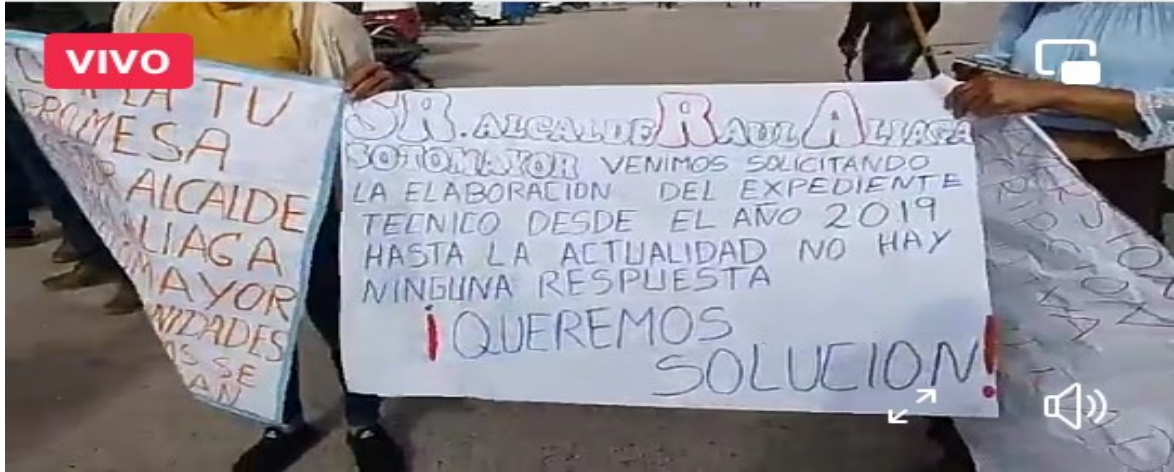 VIVO
TU
PROMESA
ALCALDE
ALIAGA
SOTOMAYOR
SE
SR. ALCALDE RAUL ALIAGA
SOTOMAYOR VENIMOS SOLICITANDO
LA ELABORACION DEL EXPEDIENTE
TECNICO DESDE EL AÑO 2019
HASTA LA ACTUALIDAD NO HAY
NINGUNA RESPUESTA
¡QUEREMOS
SOLUCION!